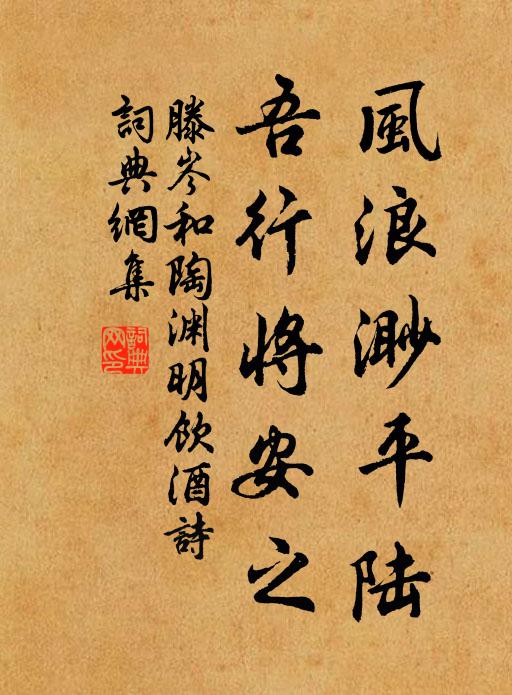 風浪渺平陆
吾行將安之
滕岑和陶渊明飲酒詩
詞典網集
詞典网印